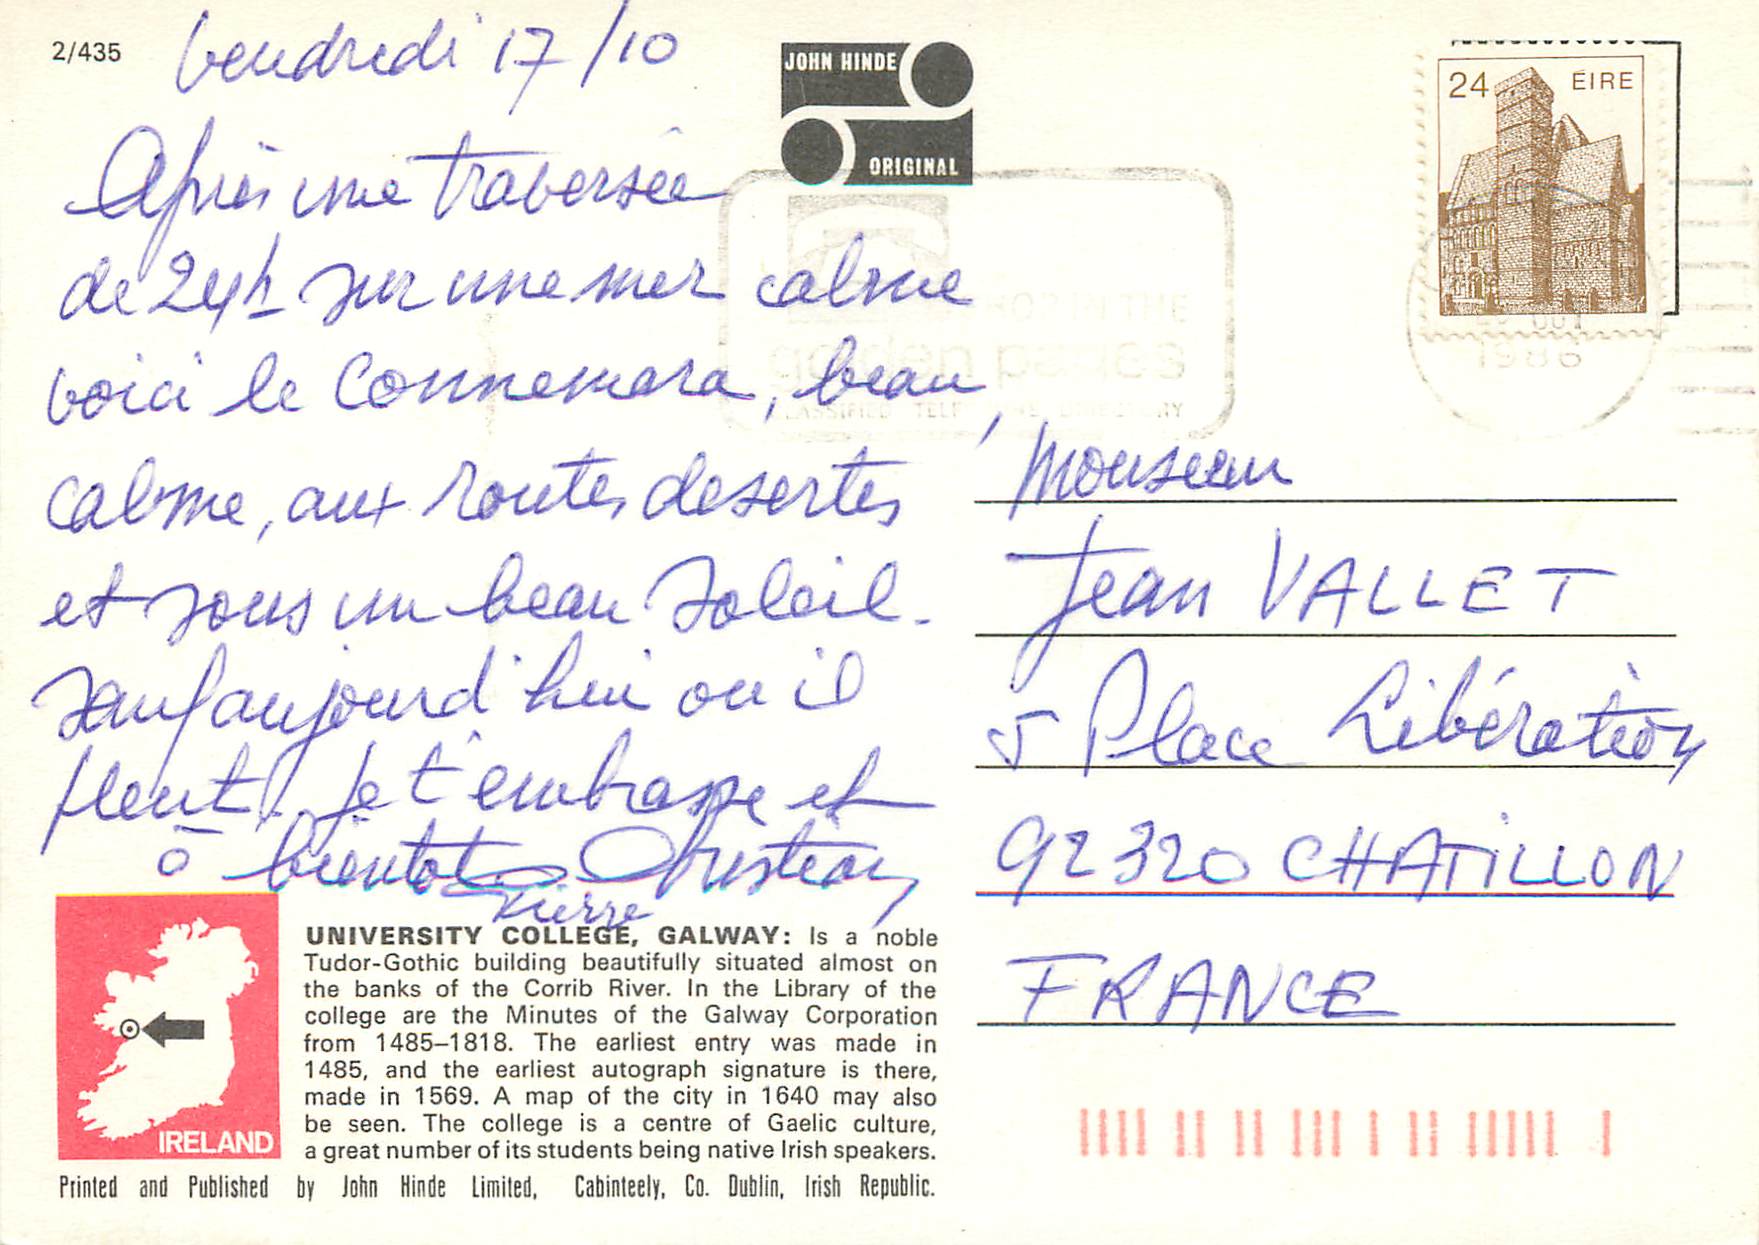 2/435
Vendredi 17/10
JOHN HINDE
ORIGINAL
24 ÉIRE
Après une traversée
de 24h sur une mer calme
voici le Connemara, beau,
calme, aux routes desertes
et sous un beau soleil.
sauf aujourd'hui ou il
pleut! je t'embrasse et
à bientot
Pierre
IN THE
golden pages
CLASSIFIED TELEPHONE DIRECTORY
1986
Monsieur
Jean VALLET
5 Place Libération
92320 CHATILLON
FRANCE
IRELAND
UNIVERSITY COLLEGE, GALWAY: Is a noble
Tudor-Gothic building beautifully situated almost on
the banks of the Corrib River. In the Library of the
college are the Minutes of the Galway Corporation
from 1485–1818. The earliest entry was made in
1485, and the earliest autograph signature is there,
made in 1569. A map of the city in 1640 may also
be seen. The college is a centre of Gaelic culture,
a great number of its students being native Irish speakers.
Printed and Published by John Hinde Limited, Cabinteely, Co. Dublin, Irish Republic.